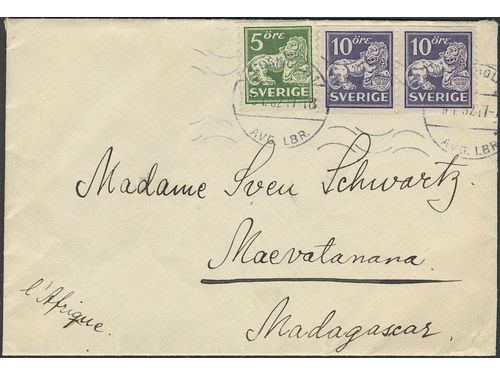 5 ÖRE
SVERIGE
10 ÖRE
SVERIGE
10 ÖRE
SVERIGE
AVG. LBR.
AVG. LBR.
Madame Sven Schwartz.
Maevatanana
l'Afrique.
Madagascar.